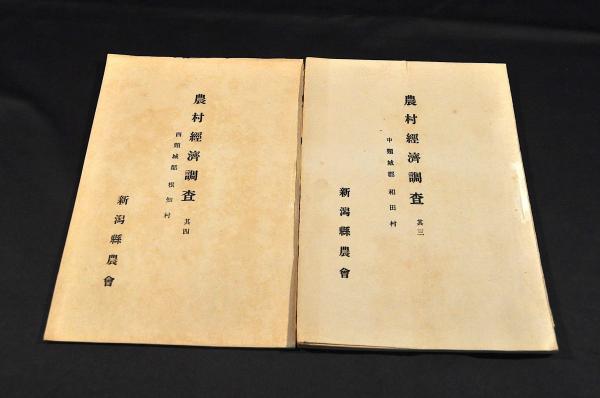 農村經濟調査 其三
中頸城郡 和田村
新潟縣農會
農村經濟調査 其四
西頸城郡 根知村
新潟縣農會